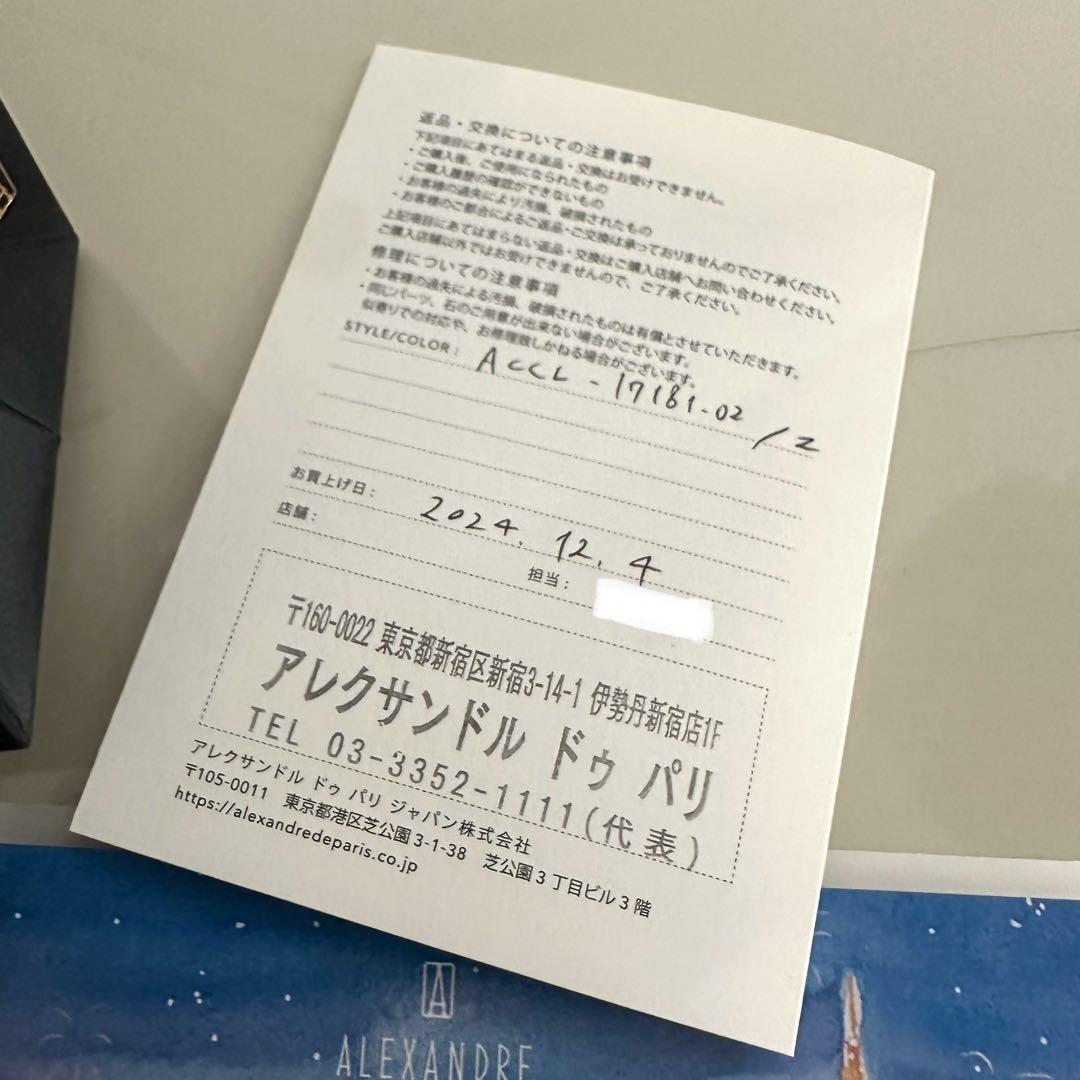 返品・交換についての注意事項
下記項目にあてはまる返品・交換はお受けできません。
・ご購入後、ご使用になられたもの
・ご購入履歴の確認ができないもの
・お客様の過失により汚損、破損されたもの
・お客様のご都合によるご返品・ご交換は承っておりませんのでご了承ください。
上記項目にあてはまらない返品・交換はご購入店舗へお問い合わせください。
ご購入店舗以外ではお受けできませんので、ご了承ください。
修理についての注意事項
・お客様の過失による汚損、破損されたものは有償とさせていただきます。
・同じパーツ、石のご用意が出来ない場合がございます。
似寄りでの対応や、お修理致しかねる場合がございます。
STYLE/COLOR : ACCL-17181-02 / 2
お買上げ日 : 2024. 12. 4
店舗 :
担当 :
〒160-0022 東京都新宿区新宿3-14-1 伊勢丹新宿店1F
アレクサンドル ドゥ パリ
TEL 03-3352-1111(代表)
アレクサンドル ドゥ パリ ジャパン株式会社
〒105-0011 東京都港区芝公園3-1-38 芝公園3丁目ビル3階
https://alexandredeparis.co.jp
A
ALEXANDRE